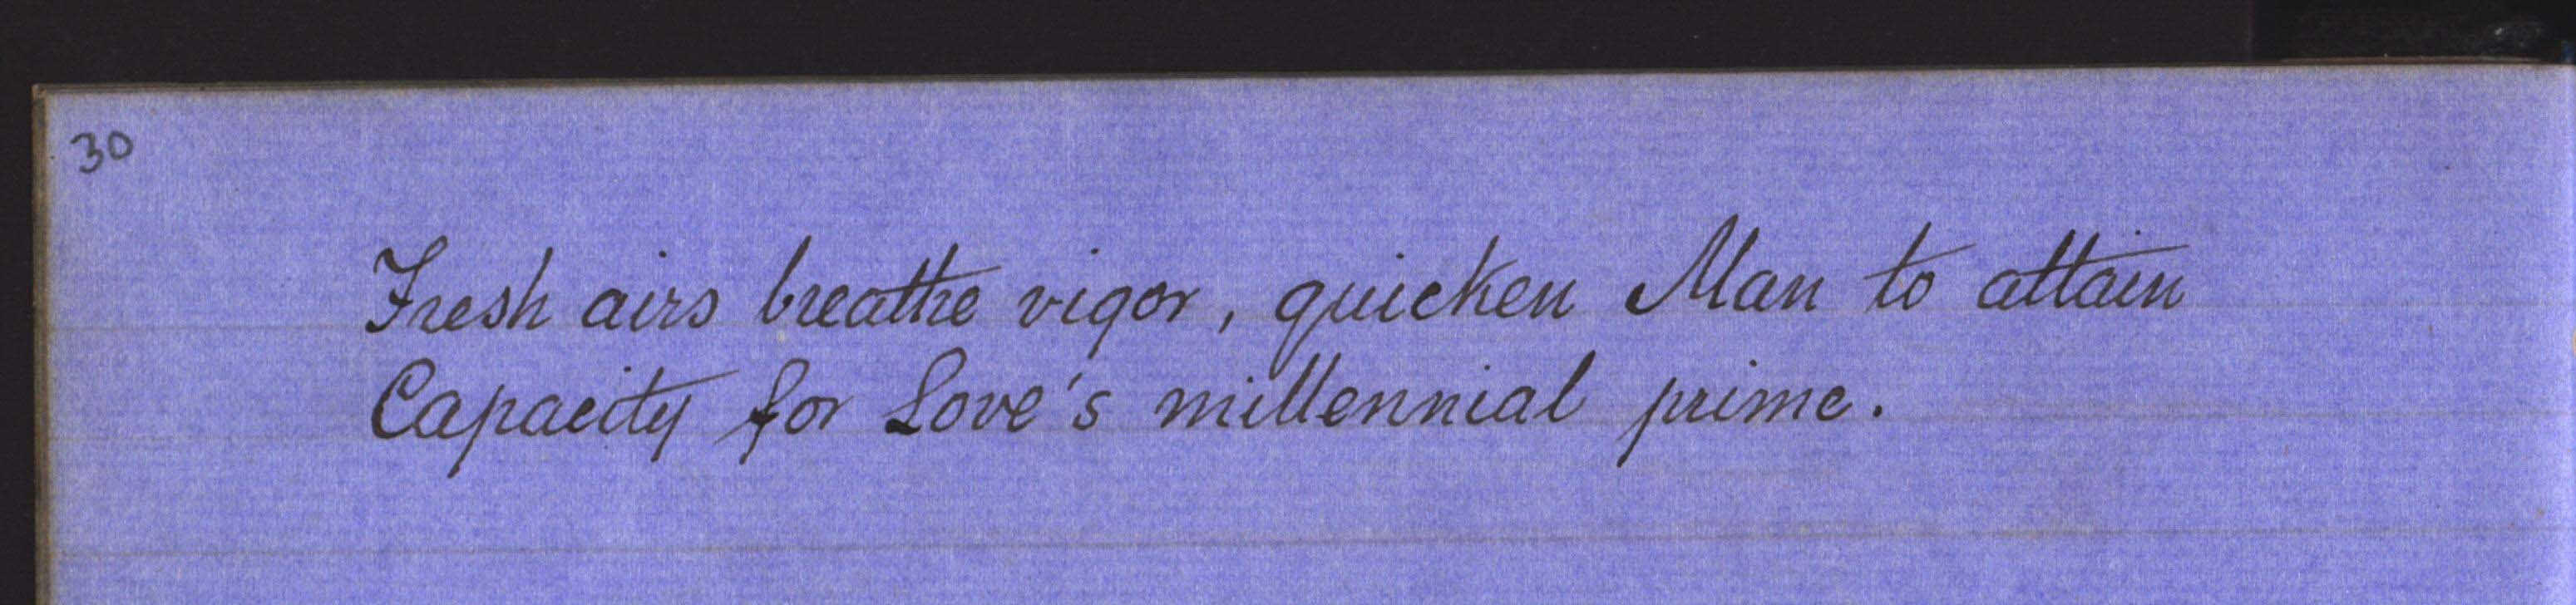 30
Fresh airs breathe vigor, quicken Man to attain
Capacity for Love's millennial prime.